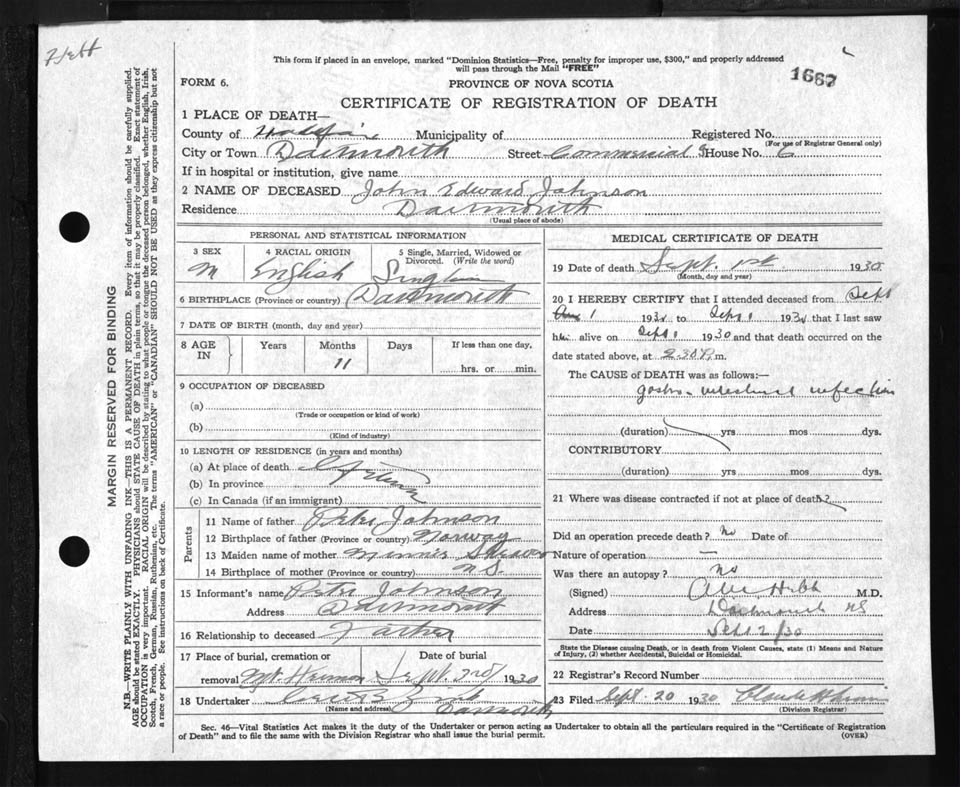 Hebb
This form if placed in an envelope, marked "Dominion Statistics—Free, penalty for improper use, $300," and properly addressed
will pass through the Mail "FREE"
1667
FORM 6.
PROVINCE OF NOVA SCOTIA
CERTIFICATE OF REGISTRATION OF DEATH
1 PLACE OF DEATH—
County of Halifax Municipality of Registered No.
(For use of Registrar General only)
City or Town Dartmouth Street Commercial House No. 6
If in hospital or institution, give name
2 NAME OF DECEASED John Edward Johnson
Residence Dartmouth
(Usual place of abode)
PERSONAL AND STATISTICAL INFORMATION
3 SEX 4 RACIAL ORIGIN 5 Single, Married, Widowed or
Divorced. (Write the word)
M English Single
6 BIRTHPLACE (Province or country) Dartmouth
7 DATE OF BIRTH (month, day and year)
8 AGE IN Years Months Days If less than one day,
11
hrs. or min.
9 OCCUPATION OF DECEASED
(a)
(Trade or occupation or kind of work)
(b)
(Kind of industry)
10 LENGTH OF RESIDENCE (in years and months)
(a) At place of death
(b) In province
(c) In Canada (if an immigrant)
Parents
11 Name of father Peter Johnson
12 Birthplace of father (Province or country) Norway
13 Maiden name of mother Minnie
14 Birthplace of mother (Province or country) N.S.
15 Informant's name Peter Johnson
Address Dartmouth
16 Relationship to deceased Father
17 Place of burial, cremation or Date of burial
removal Mt. Hermon Sept. 2nd 1930
18 Undertaker Zink
(Name and address) Dartmouth
MEDICAL CERTIFICATE OF DEATH
19 Date of death Sept. 1st 1930
(Month, day and year)
20 I HEREBY CERTIFY that I attended deceased from Sept
1 1930 to Sept 1 1930 that I last saw
him alive on Sept 1 1930 and that death occurred on the
date stated above, at 2.30 P. m.
The CAUSE of DEATH was as follows:—
gastro-intestinal infection
(duration) yrs mos dys.
CONTRIBUTORY
(duration) yrs mos dys.
21 Where was disease contracted if not at place of death?
Did an operation precede death? No Date of
Nature of operation —
Was there an autopsy? No
(Signed) Hebb M.D.
Address Dartmouth NS
Date Sept 2/30
State the Disease causing Death, or in death from Violent Causes, state (1) Means and Nature
of Injury, (2) whether Accidental, Suicidal or Homicidal.
22 Registrar's Record Number
23 Filed Sept. 20 1930 Claude
(Division Registrar)
Sec. 46—Vital Statistics Act makes it the duty of the Undertaker or person acting as Undertaker to obtain all the particulars required in the "Certificate of Registration
of Death" and to file the same with the Division Registrar who shall issue the burial permit.
(OVER)
MARGIN RESERVED FOR BINDING
N.B.—WRITE PLAINLY WITH UNFADING INK—THIS IS A PERMANENT RECORD. Every item of information should be carefully supplied.
AGE should be stated EXACTLY. PHYSICIANS should STATE CAUSE OF DEATH in plain terms, so that it may be properly classified. Exact statement of
OCCUPATION is very important. RACIAL ORIGIN will be described by stating to what people or tongue the deceased person belonged, whether English, Irish,
Scotch, French, German, Russian, Ruthenian, etc. The terms "AMERICAN" or "CANADIAN" SHOULD NOT BE USED as they express citizenship but not
a race or people. See instructions on back of Certificate.